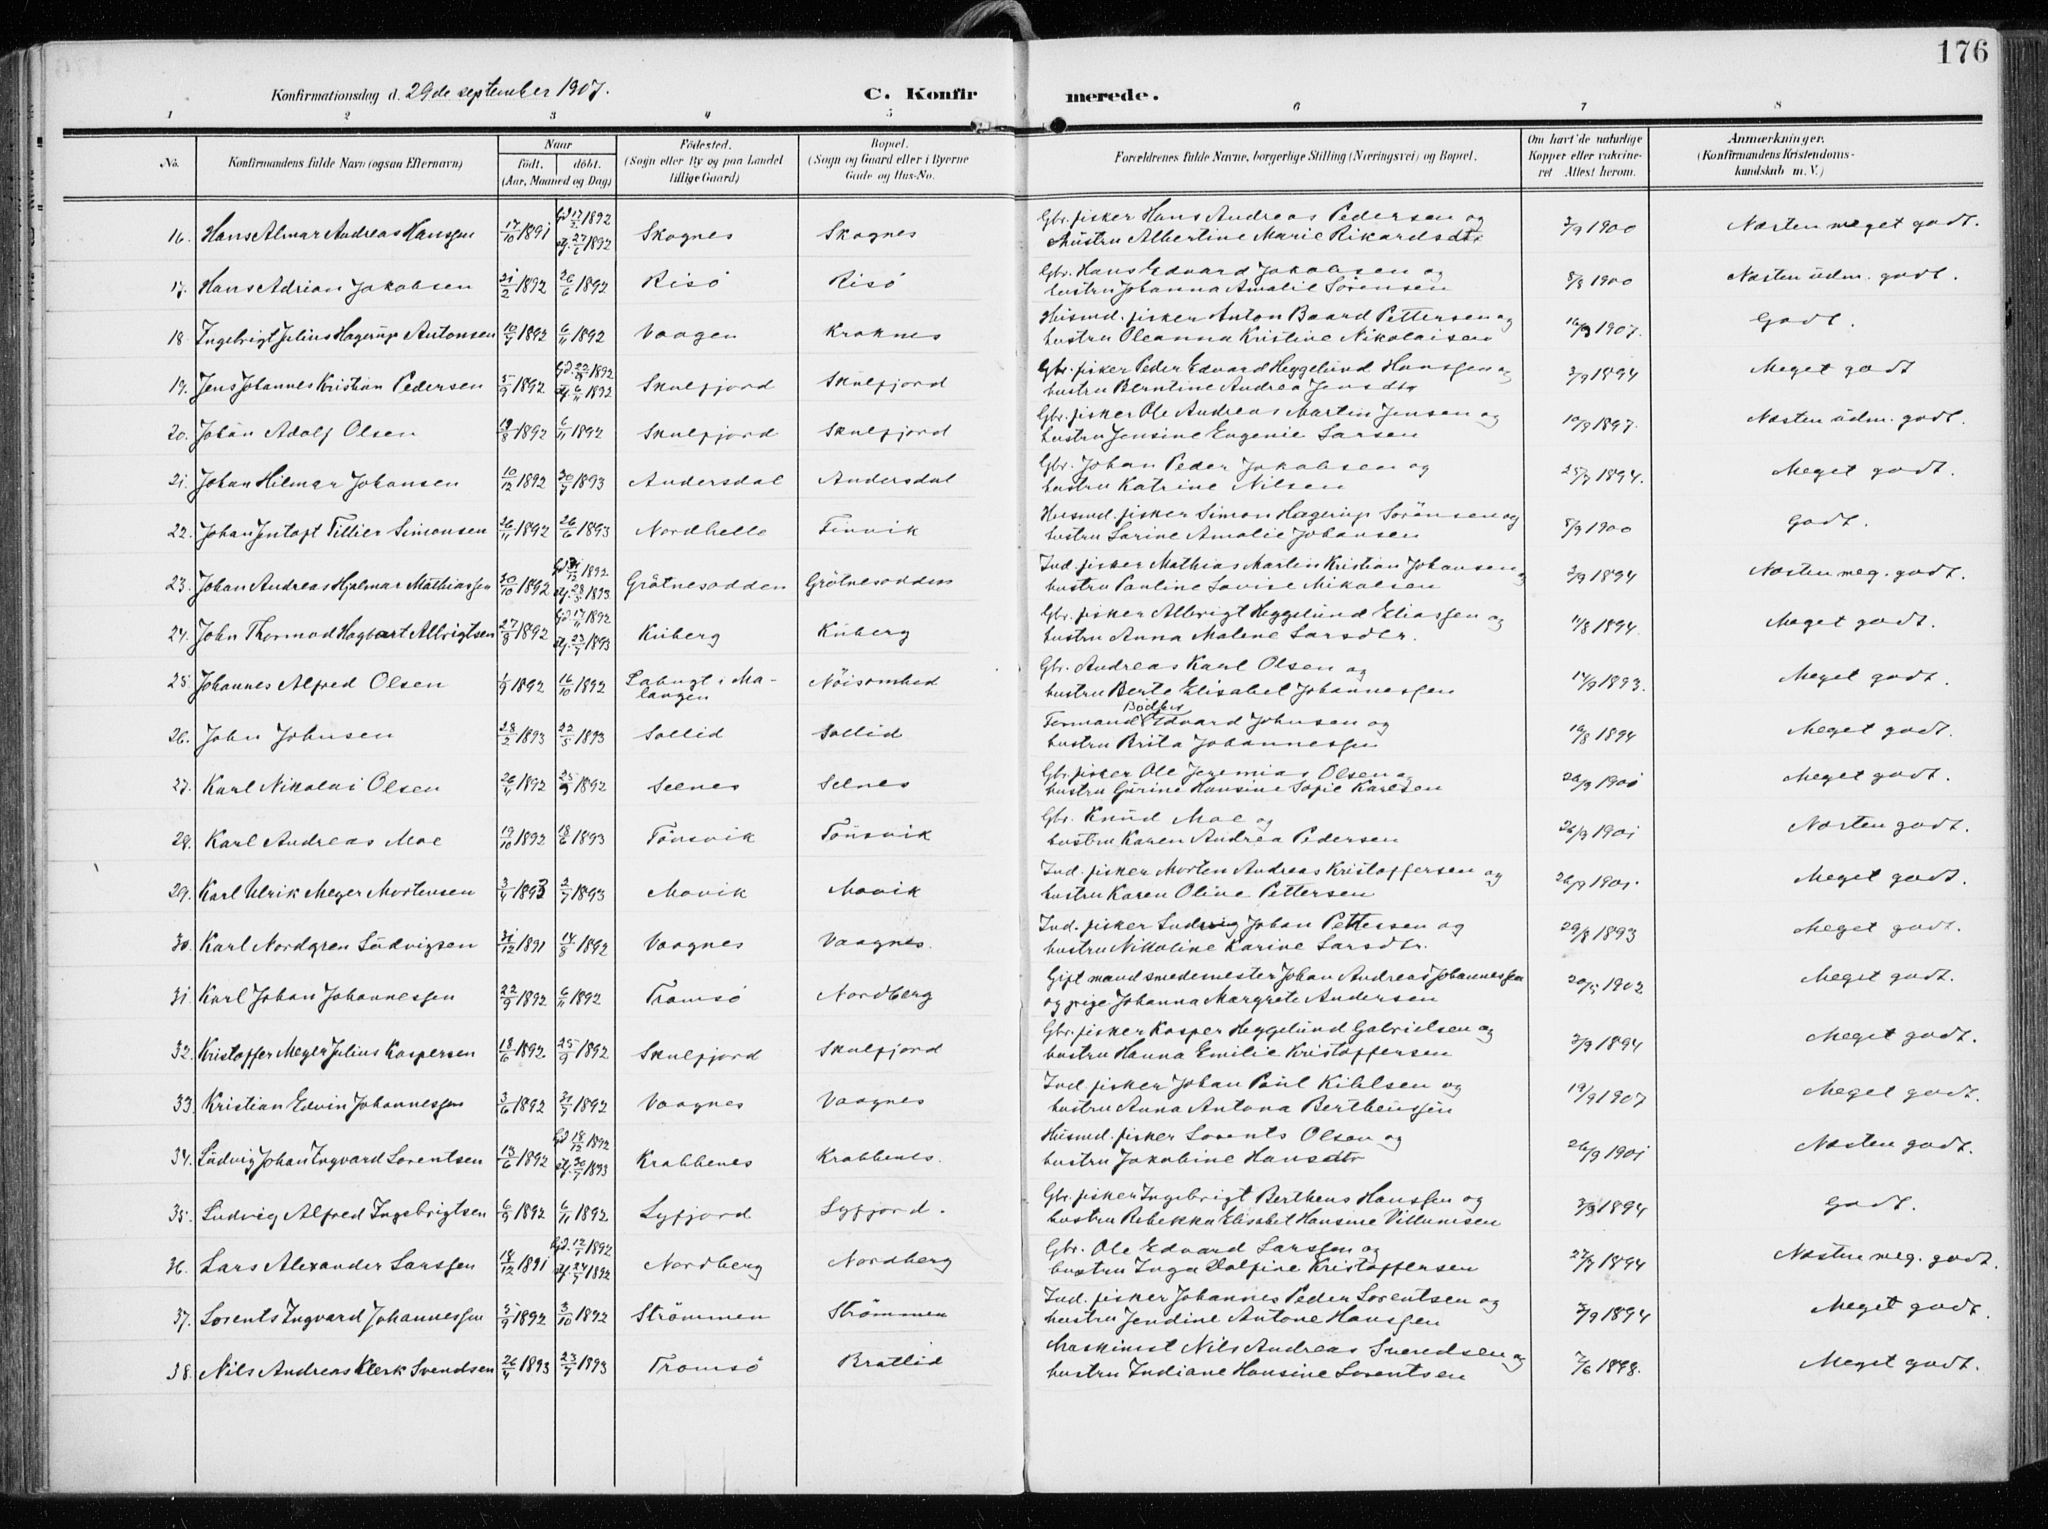 176
Konfirmationsdag d. 29de september 1907.
C. Konfirmerede.
1 2 3 4 5 6 7 8
No. Konfirmandens fulde Navn (ogsaa Efternavn) Naar født. døbt. (Aar, Maaned og Dag) Fødested. (Sogn eller By og paa Landet tillige Gaard) Bopæl. (Sogn og Gaard eller i Byerne Gade og Hus-No. Forældrenes fulde Navne, borgerlige Stilling (Næringsvei) og Bopæl. Om havt de naturlige Kopper eller vakcineret Attest herom. Anmærkninger. (Konfirmandens Kristendomskundskab m. V.)
16. Hans Almar Andreas Hanssen 17/10 1891 Gd. 17/2 1892 Skognes Skognes Gbr. fisker Hans Andreas Pedersen og 3/9 1900 Næsten meget godt.
st. 27/6 1892 hustru Albertine Marie Rikardsdtr
17. Hans Adrian Jakobsen 21/2 1892 26/6 1892 Risö Risö Gbr. Hans Edvard Jakobsen og 8/9 1900 Næsten udm. godt.
hustru Johanna Amalie Sørensen
18. Ingebrigt Julius Hagerup Antonsen 10/9 1892 6/11 1892 Vaagen Kraknes Husmd. fisker Anton Baard Pettersen og 16/9 1907. Godt.
hustru Oleanna Kristine Nikolaisen
19. Jens Johannes Kristian Pedersen 5/9 1892 Gd. 22/9 1892 Skulfjord Skulfjord Gbr. fisker Peder Edvard Heggelund Hanssen og 3/9 1894 Meget godt
st. 6/11 1892 hustru Berntine Andrea Jensdtr
20. Johan Adolf Olsen 19/8 1892 6/11 1892 Skulfjord Skulfjord Gbr. fisker Ole Andreas Martin Jensen og 10/9 1897. Næsten udm. godt.
hustru Jensine Eugenie Larsen
21. Johan Hilmar Johansen 10/12 1892 30/7 1893 Andersdal Andersdal Gbr. Johan Peder Jakobsen og 25/7 1894. Meget godt.
hustru Katrine Nilsen
22. Johan Jentoft Tillier Simonsen 26/11 1892 26/6 1893 Nordhella Finvik Husmd. fisker Simon Hagerup Sørensen og 8/9 1900 Godt.
hustru Sarine Amalie Johansen
23. Johan Andreas Hjalmar Mathiassen 30/10 1892 Gd. 31/12 1892 Grötnesodden Grötnesodden Ind. fisker Mathias Martin Kristian Johansen og 2/9 1894 Næsten meg. godt.
st. 28/5 1893 hustru Pauline Lovise Nikolsen
24. John Thormod Hagbart Albrigtsen 27/8 1892 Gd. 17/11 1892 Kuberg Kuberg Gbr. fisker Albrigt Heggelund Eliassen og 11/8 1894. Meget godt.
st. 23/7 1893 hustru Anna Malene Larsdtr.
25. Johannes Alfred Olsen 1/9 1892 16/10 1892 Sabugt i Malangen Nöisomhed Gbr. Andreas Karl Olsen og 14/9 1893. Meget godt.
hustru Berte Elisabet Johannessen
26. John Johnsen 28/2 1893 22/5 1893 Sollid Sollid Formand Edvard Johnsen og 10/8 1894 Meget godt.
hustru Brita Johannessen
27. Karl Nikolai Olsen 26/4 1892 25/9 1892 Selnes Selnes Gbr. fisker Ole Jeremias Olsen og 26/9 1901 Meget godt.
hustru Gurine Hansine Sofie Karlsen
28. Karl Andreas Moe 19/10 1892 18/6 1893 Tönsvik Tönsvik Gbr. Knud Moe og 26/9 1901 Næsten godt.
hustru Karen Andrea Pedersen
29. Karl Ulrik Meyer Mortensen 3/4 1893 2/7 1893 Movik Movik Ind. fisker Morten Andreas Kristoffersen og 26/9 1901. Meget godt.
hustru Karen Oline Pettersen
30. Karl Nordgren Ludvigsen 31/12 1891 14/8 1892 Vaagnes Vaagnes. Ind. fisker Ludvig Johan Pettersen og 29/8 1893 Meget godt.
hustru Nikoline Karine Larsdtr.
31. Karl Johan Johannessen 22/9 1892 6/11 1892 Tromsö Nordberg Gift mand smedemester Johan Andreas Johannessen 20/5 1902 Meget godt.
og pige Johanna Margrete Andersen
32. Kristoffer Meyer Julius Kaspersen 18/6 1892 25/9 1892 Skulfjord Skulfjord Gbr. fisker Kasper Heggelund Gabrielsen og 3/9 1894 Meget godt.
hustru Hanna Emilie Kristoffersen
33. Kristian Edvin Johannessen 3/6 1892 31/7 1892 Vaagnes Vaagnes Ind. fisker Johan Paul Kihlsen og 19/9 1907 Meget godt.
hustru Anna Antona Berthinssen
34. Ludvig Johan Ingvard Lorentsen 13/6 1892 Gd. 18/12 1892 Krabbenes Krabbenes. Husmd. fisker Lorents Olsen og 26/9 1901 Næsten godt.
st. 30/7 1893 hustru Jakobine Hansdtr
35. Ludvig Alfred Ingebrigtsen 6/9 1892 6/11 1892 Lyfjord Lyfjord. Gbr. fisker Ingebrigt Berthens Hanssen og 3/9 1894 godt.
hustru Rebekka Elisabet Hansine Villumsen
36. Lars Alexander Larssen 18/12 1891 Gd. 12/1 1892 Nordberg Nordberg Gbr. Ole Edvard Larssen og 27/7 1894 Næsten meg. godt.
st. 24/7 1892 hustru Inga Dalfine Kristoffersen
37. Lorents Ingvard Johannessen 5/9 1892 3/10 1892 Strömmen Strömmen Ind. fisker Johannes Peder Lorentsen og 3/9 1894 Meget godt.
hustru Jendine Antone Hanssen
38. Nils Andreas Klerk Svendsen 26/4 1893 23/7 1893 Tromsö Bratlid Maskinist Nils Andreas Svendsen og 7/6 1898. Meget godt.
hustru Indiane Hansine Lorentsen